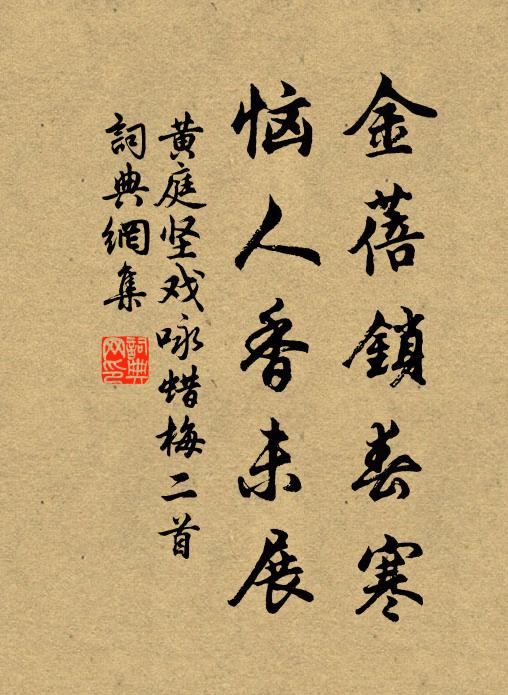 金蓓鎖春寒
恼人香未展
黄庭坚戏咏蜡梅二首
詞典網集
詞典网印